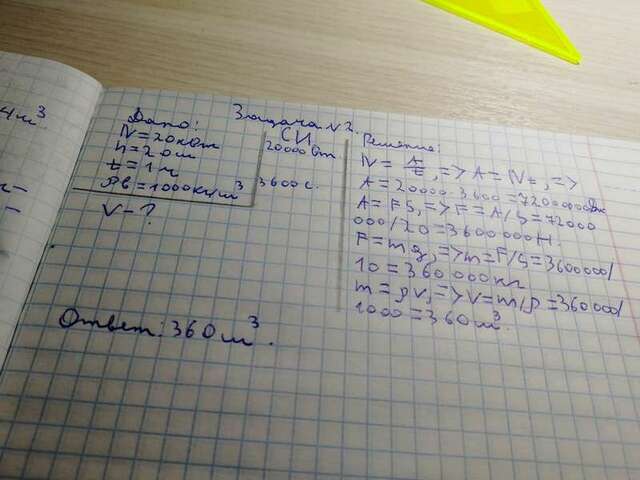 4м³
Задача №2.
Дано:
N = 20 кВт
h = 20 м
t = 1 ч
ρв = 1000 кг/м³
V - ?
СИ
20000 Вт.
3600 с.
Решение:
N = A/t, => A = Nt, =>
A = 20000 · 3600 = 72000000 Дж
A = FS, => F = A/S = 72000
000/20 = 3600000 Н.
F = mg, => m = F/g = 3600000/
10 = 360 000 кг
m = ρV, => V = m/ρ = 360000/
1000 = 360 м³.
Ответ: 360 м³.